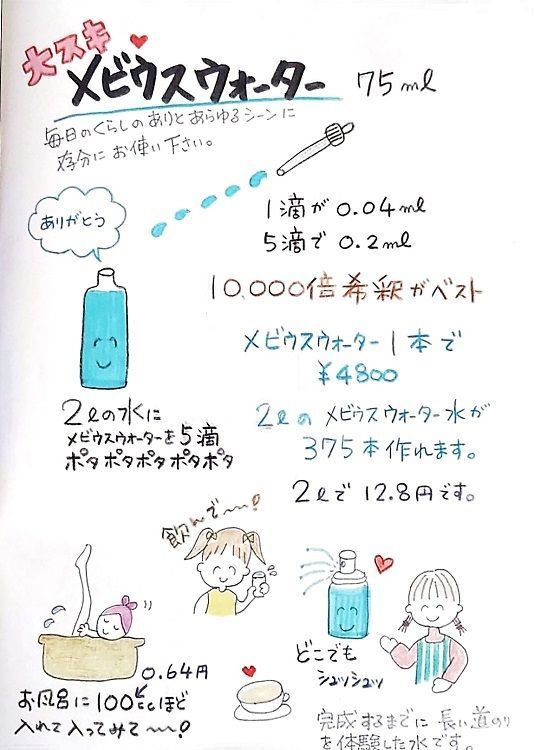 大スキ
メビウスウォーター 75ml
毎日のくらしのありとあらゆるシーンに
存分にお使い下さい。
ありがとう
1滴が 0.04ml
5滴で 0.2ml
10,000倍希釈がベスト
メビウスウォーター1本で
¥4800
2ℓの水に
メビウスウォーターを5滴
ポタポタポタポタポタ
2ℓのメビウスウォーター水が
375本作れます。
2ℓで 12.8円です。
飲んで〜〜!
0.64円
お風呂に100ccほど
入れて入ってみて〜〜!
どこでも
シュッシュッ
完成するまでに長い道のり
を体験した水です。